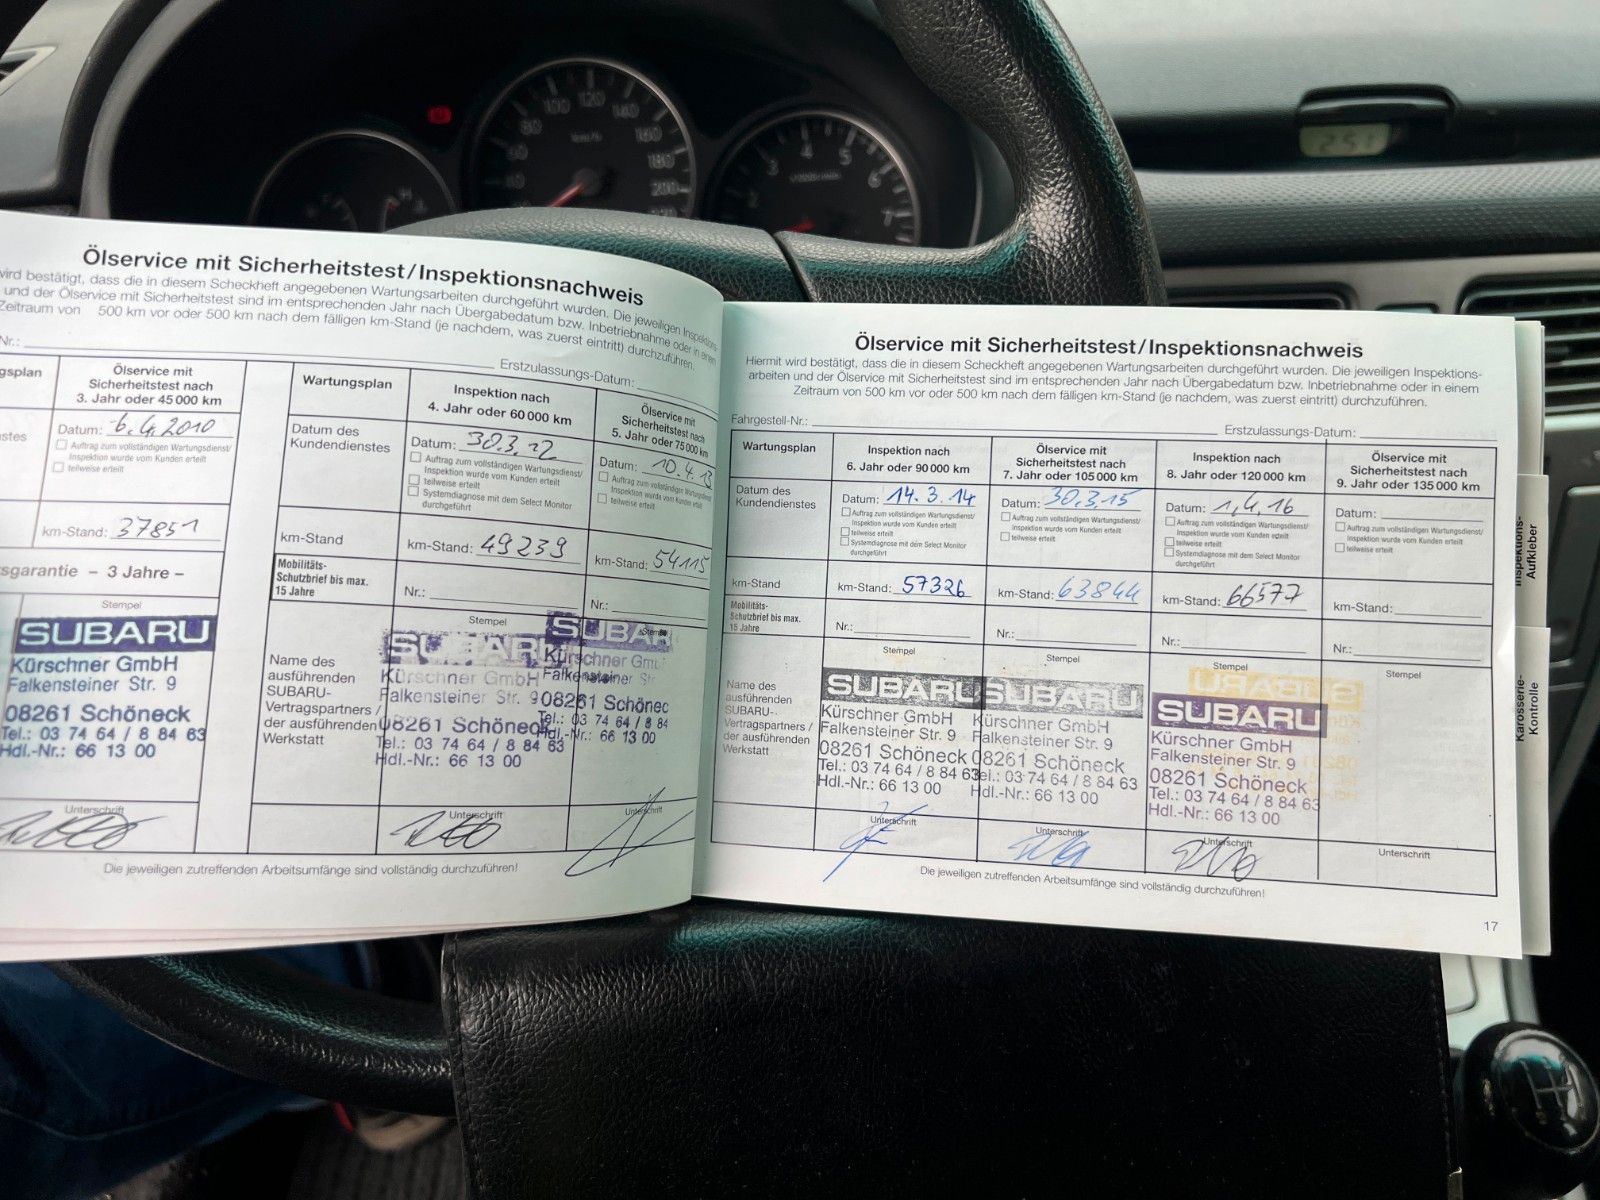 120
100
140
80
160
km/h
180
200
3
4
5
6
7
2:51
Ölservice mit Sicherheitstest/Inspektionsnachweis
wird bestätigt, dass die in diesem Scheckheft angegebenen Wartungsarbeiten durchgeführt wurden. Die jeweiligen Inspektions-
und der Ölservice mit Sicherheitstest sind im entsprechenden Jahr nach Übergabedatum bzw. Inbetriebnahme oder in einem
Zeitraum von 500 km vor oder 500 km nach dem fälligen km-Stand (je nachdem, was zuerst eintritt) durchzuführen.
Nr.:
Erstzulassungs-Datum:
Ölservice mit
Sicherheitstest nach
3. Jahr oder 45 000 km
Datum: 6.4.2010
Auftrag zum vollständigen Wartungsdienst/
Inspektion wurde vom Kunden erteilt
teilweise erteilt
km-Stand: 37851
– 3 Jahre –
Stempel
SUBARU
Kürschner GmbH
Falkensteiner Str. 9
08261 Schöneck
Tel.: 03 74 64 / 8 84 63
Hdl.-Nr.: 66 13 00
Unterschrift
Wartungsplan
Datum des
Kundendienstes
km-Stand
Mobilitäts-
Schutzbrief bis max.
15 Jahre
Name des
ausführenden
SUBARU-
Vertragspartners /
der ausführenden
Werkstatt
Inspektion nach
4. Jahr oder 60 000 km
Datum: 30.3.
Auftrag zum vollständigen Wartungsdienst/
Inspektion wurde vom Kunden erteilt
teilweise erteilt
Systemdiagnose mit dem Select Monitor
durchgeführt
km-Stand: 49239
Nr.:
Stempel
SUBARU
Kürschner GmbH
Falkensteiner Str. 9
08261 Schöneck
Tel.: 03 74 64 / 8 84 63
Hdl.-Nr.: 66 13 00
Unterschrift
Ölservice mit
Sicherheitstest nach
5. Jahr oder 75 000 km
Datum: 10.4.13
Auftrag zum vollständigen Wartungsdienst/
Inspektion wurde vom Kunden erteilt
teilweise erteilt
km-Stand: 54115
Nr.:
Stempel
SUBARU
Kürschner
Falkensteiner Str
08261 Schöneck
Tel.: 03 74 64 / 8 84
Hdl.-Nr.: 66 13 00
Unterschrift
Die jeweiligen zutreffenden Arbeitsumfänge sind vollständig durchzuführen!
Ölservice mit Sicherheitstest/Inspektionsnachweis
Hiermit wird bestätigt, dass die in diesem Scheckheft angegebenen Wartungsarbeiten durchgeführt wurden. Die jeweiligen Inspektions-
arbeiten und der Ölservice mit Sicherheitstest sind im entsprechenden Jahr nach Übergabedatum bzw. Inbetriebnahme oder in einem
Zeitraum von 500 km vor oder 500 km nach dem fälligen km-Stand (je nachdem, was zuerst eintritt) durchzuführen.
Fahrgestell-Nr.:
Erstzulassungs-Datum:
Wartungsplan
Datum des
Kundendienstes
km-Stand
Mobilitäts-
Schutzbrief bis max.
15 Jahre
Name des
ausführenden
SUBARU-
Vertragspartners /
der ausführenden
Werkstatt
Inspektion nach
6. Jahr oder 90 000 km
Datum: 14.3.14
Auftrag zum vollständigen Wartungsdienst/
Inspektion wurde vom Kunden erteilt
teilweise erteilt
Systemdiagnose mit dem Select Monitor
durchgeführt
km-Stand: 57326
Nr.:
Stempel
SUBARU
Kürschner GmbH
Falkensteiner Str. 9
08261 Schöneck
Tel.: 03 74 64 / 8 84 63
Hdl.-Nr.: 66 13 00
Unterschrift
Ölservice mit
Sicherheitstest nach
7. Jahr oder 105 000 km
Datum: 30.3.15
Auftrag zum vollständigen Wartungsdienst/
Inspektion wurde vom Kunden erteilt
teilweise erteilt
km-Stand: 63844
Nr.:
Stempel
SUBARU
Kürschner GmbH
Falkensteiner Str. 9
08261 Schöneck
Tel.: 03 74 64 / 8 84 63
Hdl.-Nr.: 66 13 00
Unterschrift
Inspektion nach
8. Jahr oder 120 000 km
Datum: 1.4.16
Auftrag zum vollständigen Wartungsdienst/
Inspektion wurde vom Kunden erteilt
teilweise erteilt
Systemdiagnose mit dem Select Monitor
durchgeführt
km-Stand: 66577
Nr.:
Stempel
SUBARU
SUBARU
Kürschner GmbH
Falkensteiner Str. 9
08261 Schöneck
Tel.: 03 74 64 / 8 84 63
Hdl.-Nr.: 66 13 00
Unterschrift
Ölservice mit
Sicherheitstest nach
9. Jahr oder 135 000 km
Datum:
Auftrag zum vollständigen Wartungsdienst/
Inspektion wurde vom Kunden erteilt
teilweise erteilt
km-Stand:
Nr.:
Stempel
Unterschrift
Die jeweiligen zutreffenden Arbeitsumfänge sind vollständig durchzuführen!
17
Inspektions-
Aufkleber
Karosserie-
Kontrolle